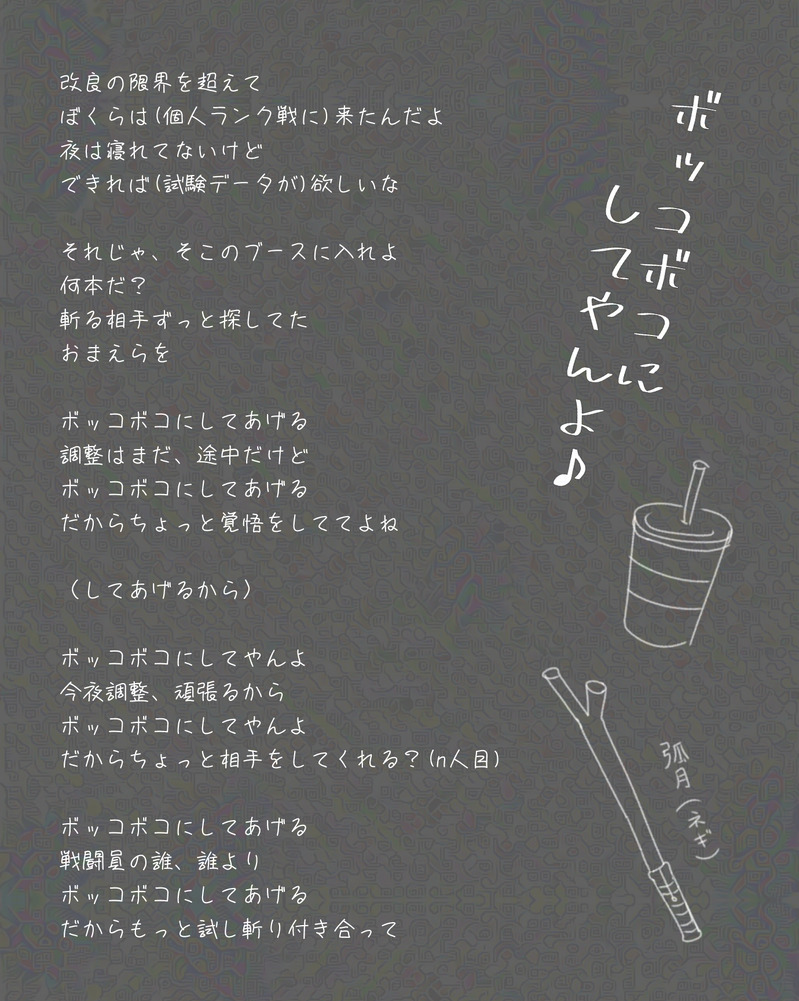 ボッコボコに
してやんよ♪
改良の限界を超えて
ぼくらは(個人ランク戦に)来たんだよ
夜は寝れてないけど
できれば(試験データが)欲しいな
それじゃ、そこのブースに入れよ
何本だ?
斬る相手ずっと探してた
おまえらを
ボッコボコにしてあげる
調整はまだ、途中だけど
ボッコボコにしてあげる
だからちょっと覚悟をしててよね
(してあげるから)
ボッコボコにしてやんよ
今夜調整、頑張るから
ボッコボコにしてやんよ
だからちょっと相手をしてくれる?(n人目)
ボッコボコにしてあげる
戦闘員の誰、誰より
ボッコボコにしてあげる
だからもっと試し斬り付き合って
弧月(ネギ)